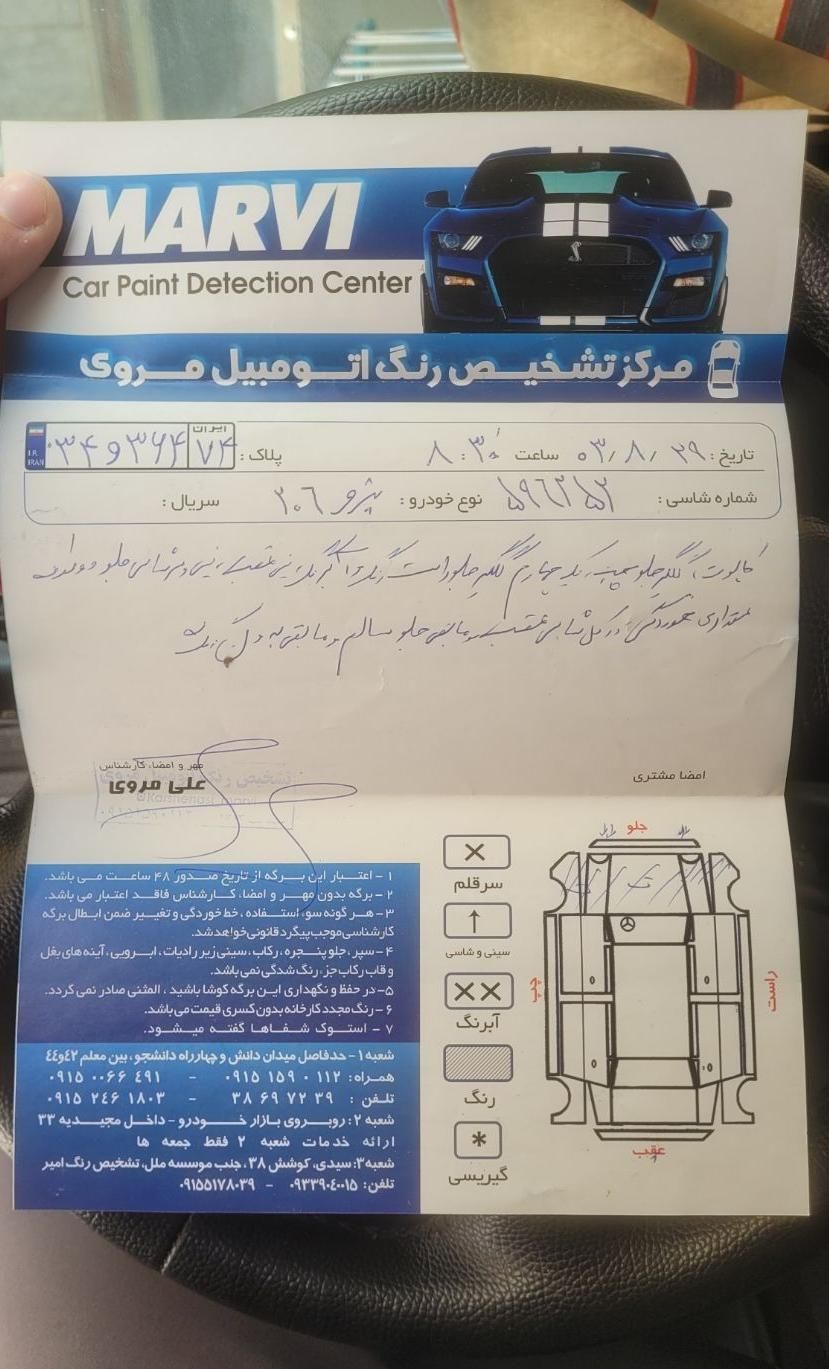 MARVI
Car Paint Detection Center
مرکز تشخیص رنگ اتومبیل مروی
تاریخ: ۰۳/۸/۲۹ ساعت ۸:۳۰ پلاک: ایران ۷۴ ۳۶۴ و ۳۴
I.R. IRAN
شماره شاسی: ۵۹۶۲۵۲ نوع خودرو: پژو ۲۰۶ سریال:
کاپوت، گلگیر جلو چپ، یک چهارم گلگیر جلو راست رنگ
مقداری خوردگی در شاسی عقب و مابقی جلو سالم و مابقی بدون رنگ
مهر و امضاء کارشناس
علی مروی
امضا مشتری
۱ - اعتبار این برگه از تاریخ صدور ۴۸ ساعت می باشد.
۲ - برگه بدون مهر و امضاء کارشناس فاقد اعتبار می باشد.
۳ - هر گونه سوء استفاده، خط خوردگی و تغییر ضمن ابطال برگه
کارشناسی موجب پیگرد قانونی خواهد شد.
۴ - سپر، جلو پنجره، رکاب، سینی زیر رادیات، ابرویی، آینه های بغل
و قاب رکاب جزء رنگ شدگی نمی باشد.
۵- در حفظ و نگهداری این برگه کوشا باشید، المثنی صادر نمی گردد.
۶ - رنگ مجدد کارخانه بدون کسری قیمت می باشد.
۷ - استوک شفاها گفته میشود.
شعبه۱ - حدفاصل میدان دانش و چهارراه دانشجو، بین معلم ۴۲و۴۴
همراه: ۰۹۱۵ ۱۵۹ ۰ ۱۱۲ - ۰۹۱۵ ۰۰۶۶ ۴۹۱
تلفن : ۳۸ ۶۹ ۷۲ ۳۹ - ۰۹۱۵ ۲۴۶ ۱۸۰۳
شعبه ۲: روبروی بازار خودرو - داخل مجیدیه ۳۳
ارائه خدمات شعبه ۲ فقط جمعه ها
شعبه۳: سیدی، کوشش ۳۸، جنب موسسه ملل، تشخیص رنگ امیر
تلفن: ۰۹۳۳۹۰۴۰۰۱۵ - ۰۹۱۵۵۱۷۸۰۳۹
سرقلم
سینی و شاسی
آبرنگ
رنگ
گیریسی
جلو
چپ
راست
عقب